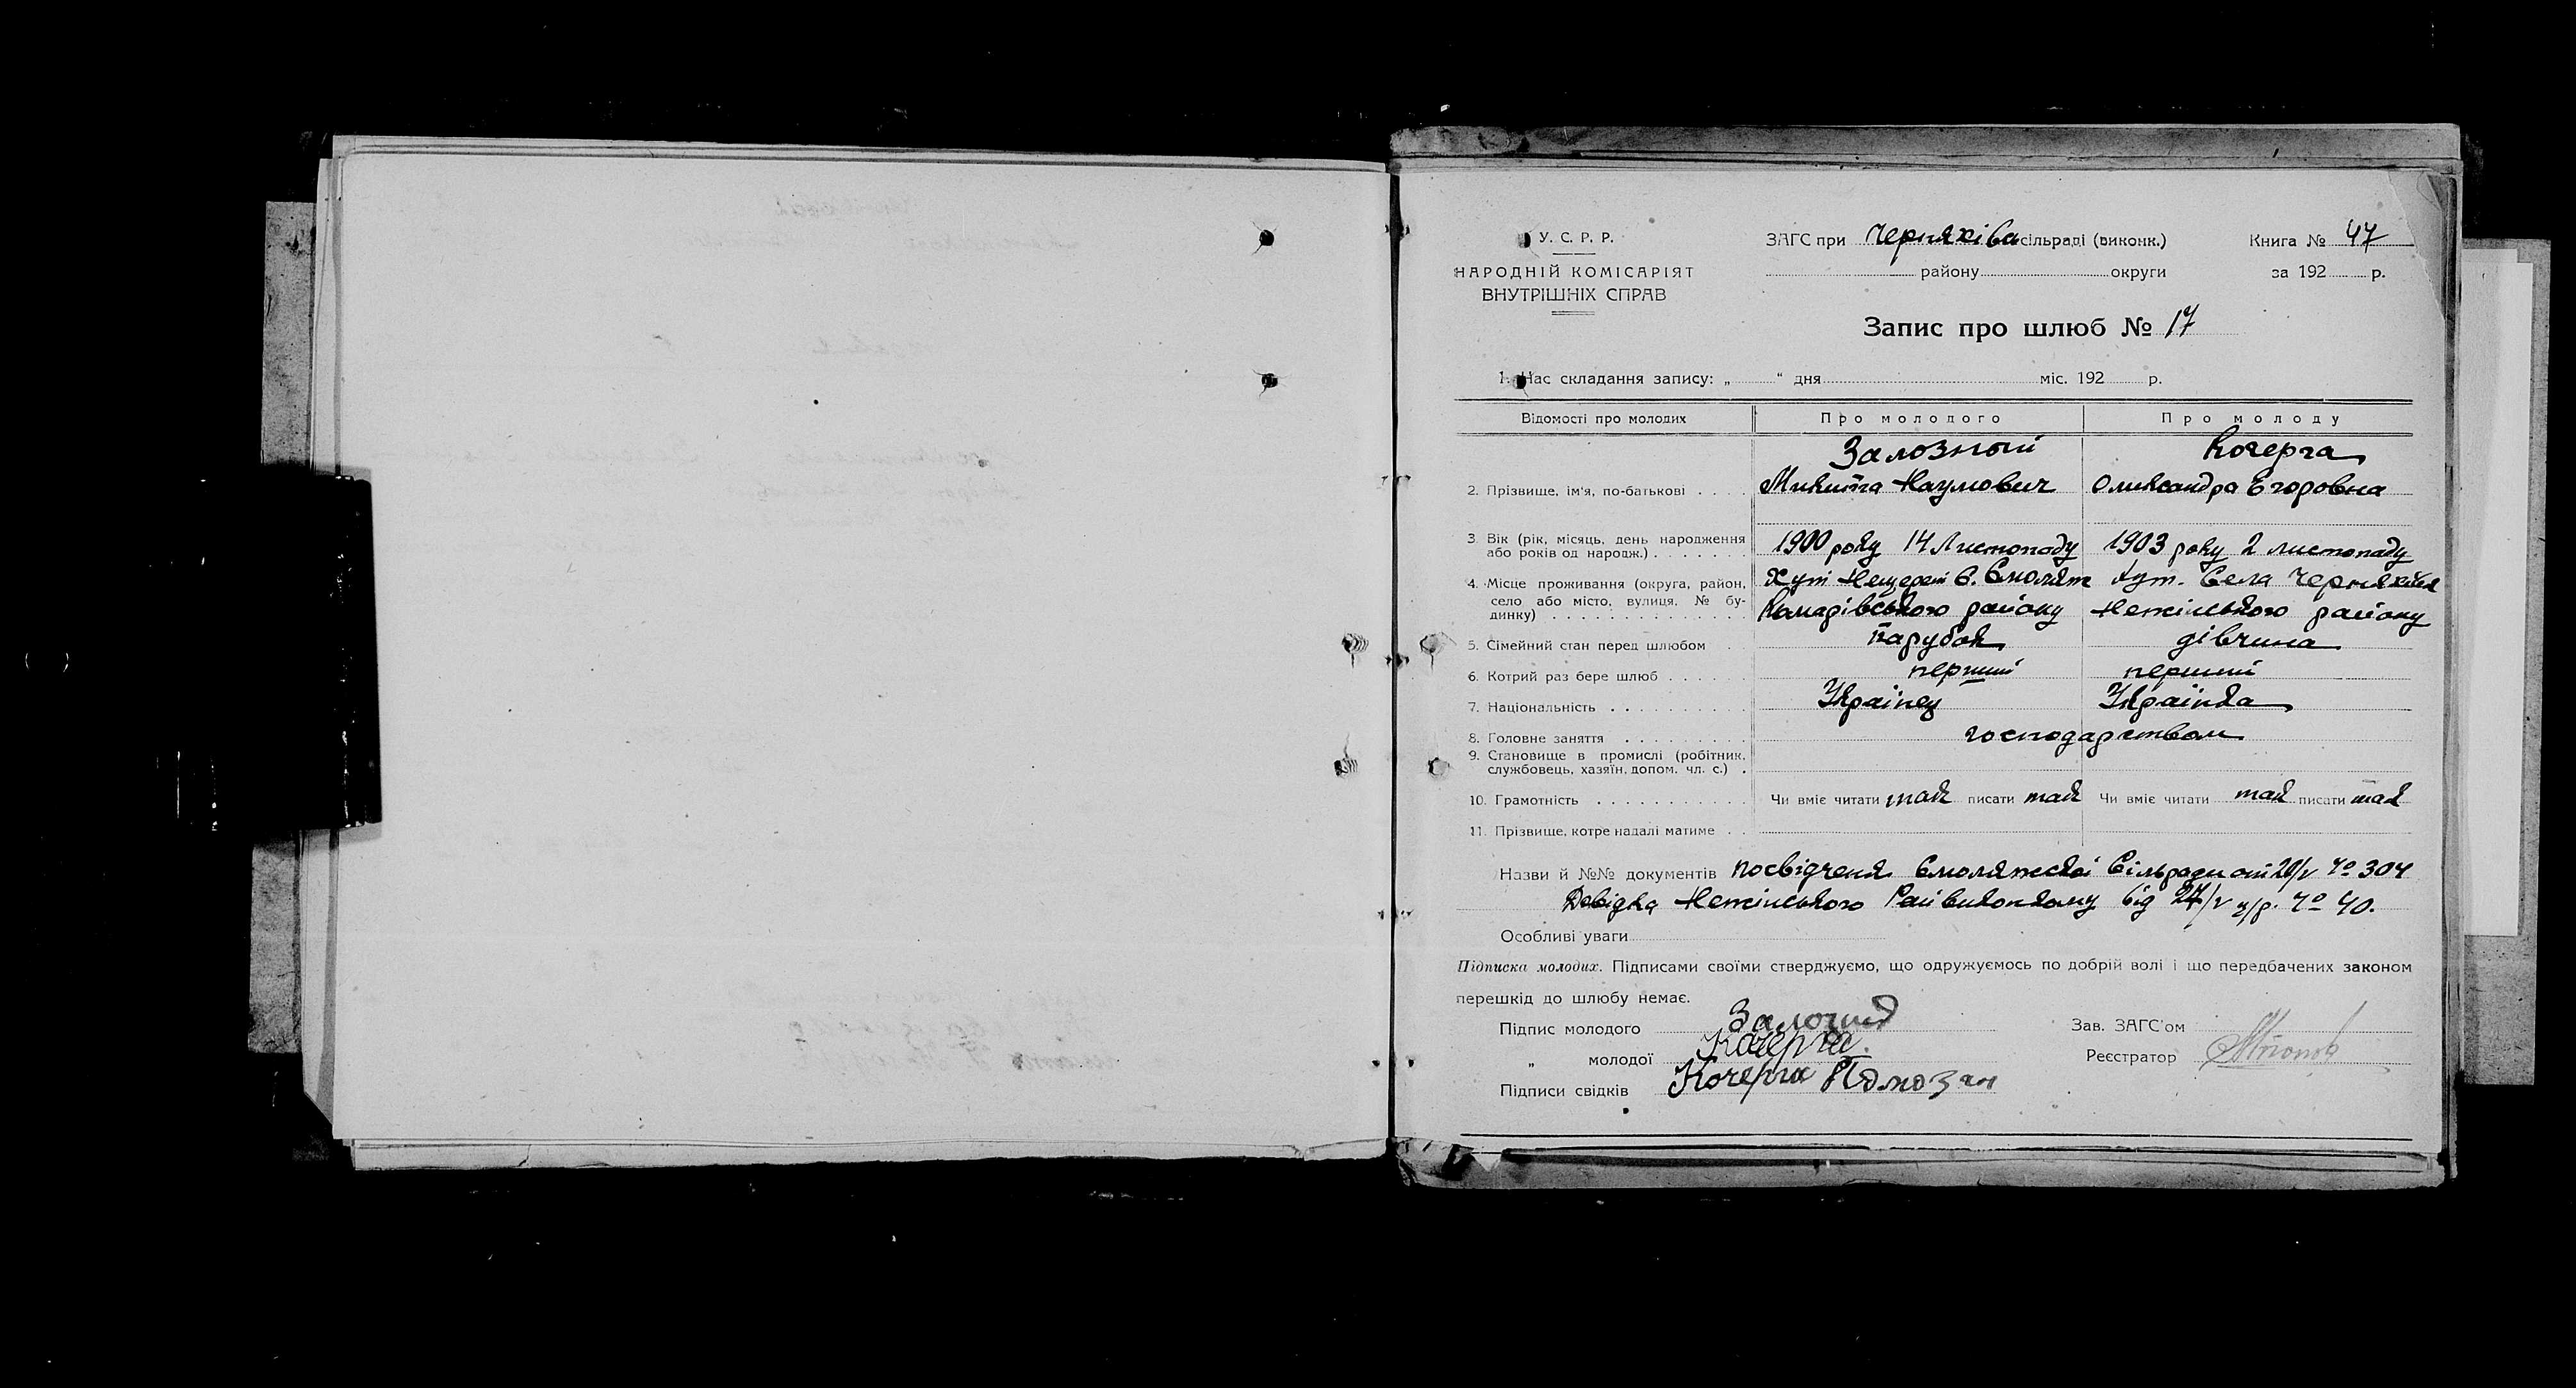 У. С. Р. Р.
НАРОДНІЙ КОМІСАРІЯТ
ВНУТРІШНІХ СПРАВ
ЗАГС при Черняхівс сільраді (виконк.)
району округи
Книга № 47
за 192 р.
Запис про шлюб № 17
1. Час складання запису: „ “ дня міс. 192 р.
Відомості про молодих Про молодого Про молоду
Залозный Кочерга
2. Прізвище, ім'я, по-батькові . . . . Микита Наумович Олександра Егоровна
3. Вік (рік, місяць, день народження
або років од народж.) . . . . . . . 1900 року 14 Листопаду 1903 року 2 листопаду
4. Місце проживання (округа, район, Хут С. Смоляж Хут. Села
село або місто, вулиця, № бу-
динку) . . . . . . . . . . . . . . району Неженського району
5. Сімейний стан перед шлюбом . парубок дівчина
6. Котрий раз бере шлюб . . . . . . перший перший
7. Національність . . . . . . . . . . Українец Українка
8. Головне заняття . . . . . . . . . господарством
9. Становище в промислі (робітник,
службовець, хазяїн, допом. чл. с.) .
10. Грамотність . . . . . . . . . . . Чи вміє читати так писати так Чи вміє читати так писати так
11. Прізвище, котре надалі матиме . .
Назви й №№ документів посвідченя Смоляжскої Сільради от /V № 304
Довідка Неженського Райвиконкому від 27/V ц/р. № 40.
Особливі уваги
Підписка молодих. Підписами своїми стверджуємо, що одружуємось по добрій волі і що передбачених законом
перешкід до шлюбу немає.
Підпис молодого
„ молодої Кочерга.
Підписи свідків Кочерга
Зав. ЗАГС'ом
Реєстратор